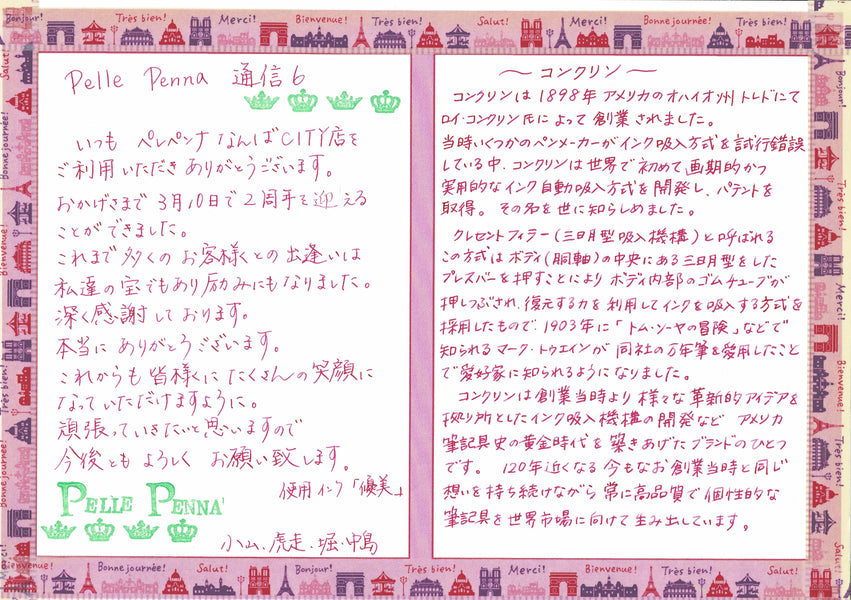 Pelle Penna 通信6
いつも ペレペンナ なんばCITY店を
ご利用いただき ありがとうございます。
おかげさまで 3月10日で 2周年を迎える
ことができました。
これまで多くの お客様との出逢いは
私達の宝でもあり励みにもなりました。
深く感謝しております。
本当に ありがとうございます。
これからも 皆様に たくさんの笑顔に
なっていただけますように。
頑張っていきたいと思いますので
今後とも よろしく お願い致します。
使用インク「優美」
PELLE PENNA
小山、虎走、堀、中島
〜コンクリン〜
コンクリンは1898年アメリカのオハイオ州トレドにて
ロイ・コンクリン氏によって創業されました。
当時いくつかのペンメーカーがインク吸入方式を試行錯誤
している中、コンクリンは世界で初めて画期的かつ
実用的なインク自動吸入方式を開発し、パテントを
取得。その名を世に知らしめました。
クレセントフィラー(三日月型吸入機構)と呼ばれる
この方式はボディ(胴軸)の中央にある三日月型をした
プレスバーを押すことによりボディ内部のゴムチューブが
押しつぶされ、復元する力を利用してインクを吸入する方式を
採用したもので、1903年に「トム・ソーヤの冒険」などで
知られるマーク・トウエインが同社の万年筆を愛用したこと
で愛好家に知られるようになりました。
コンクリンは創業当時より様々な革新的アイデアを
拠り所としたインク吸入機構の開発など アメリカ
筆記具史の黄金時代を築きあげたブランドのひとつ
です。120年近くなる今もなお創業当時と同じ
想いを持ち続けながら常に高品質で個性的な
筆記具を世界市場に向けて生み出しています。
Bonjour!
Très bien!
Merci!
Bienvenue!
Très bien!
Salut!
Merci!
Bonne journée!
Très bien!
Bonne journée!
Salut!
Bonjour!
Merci!
Bienvenue!
Très bien!
Salut!